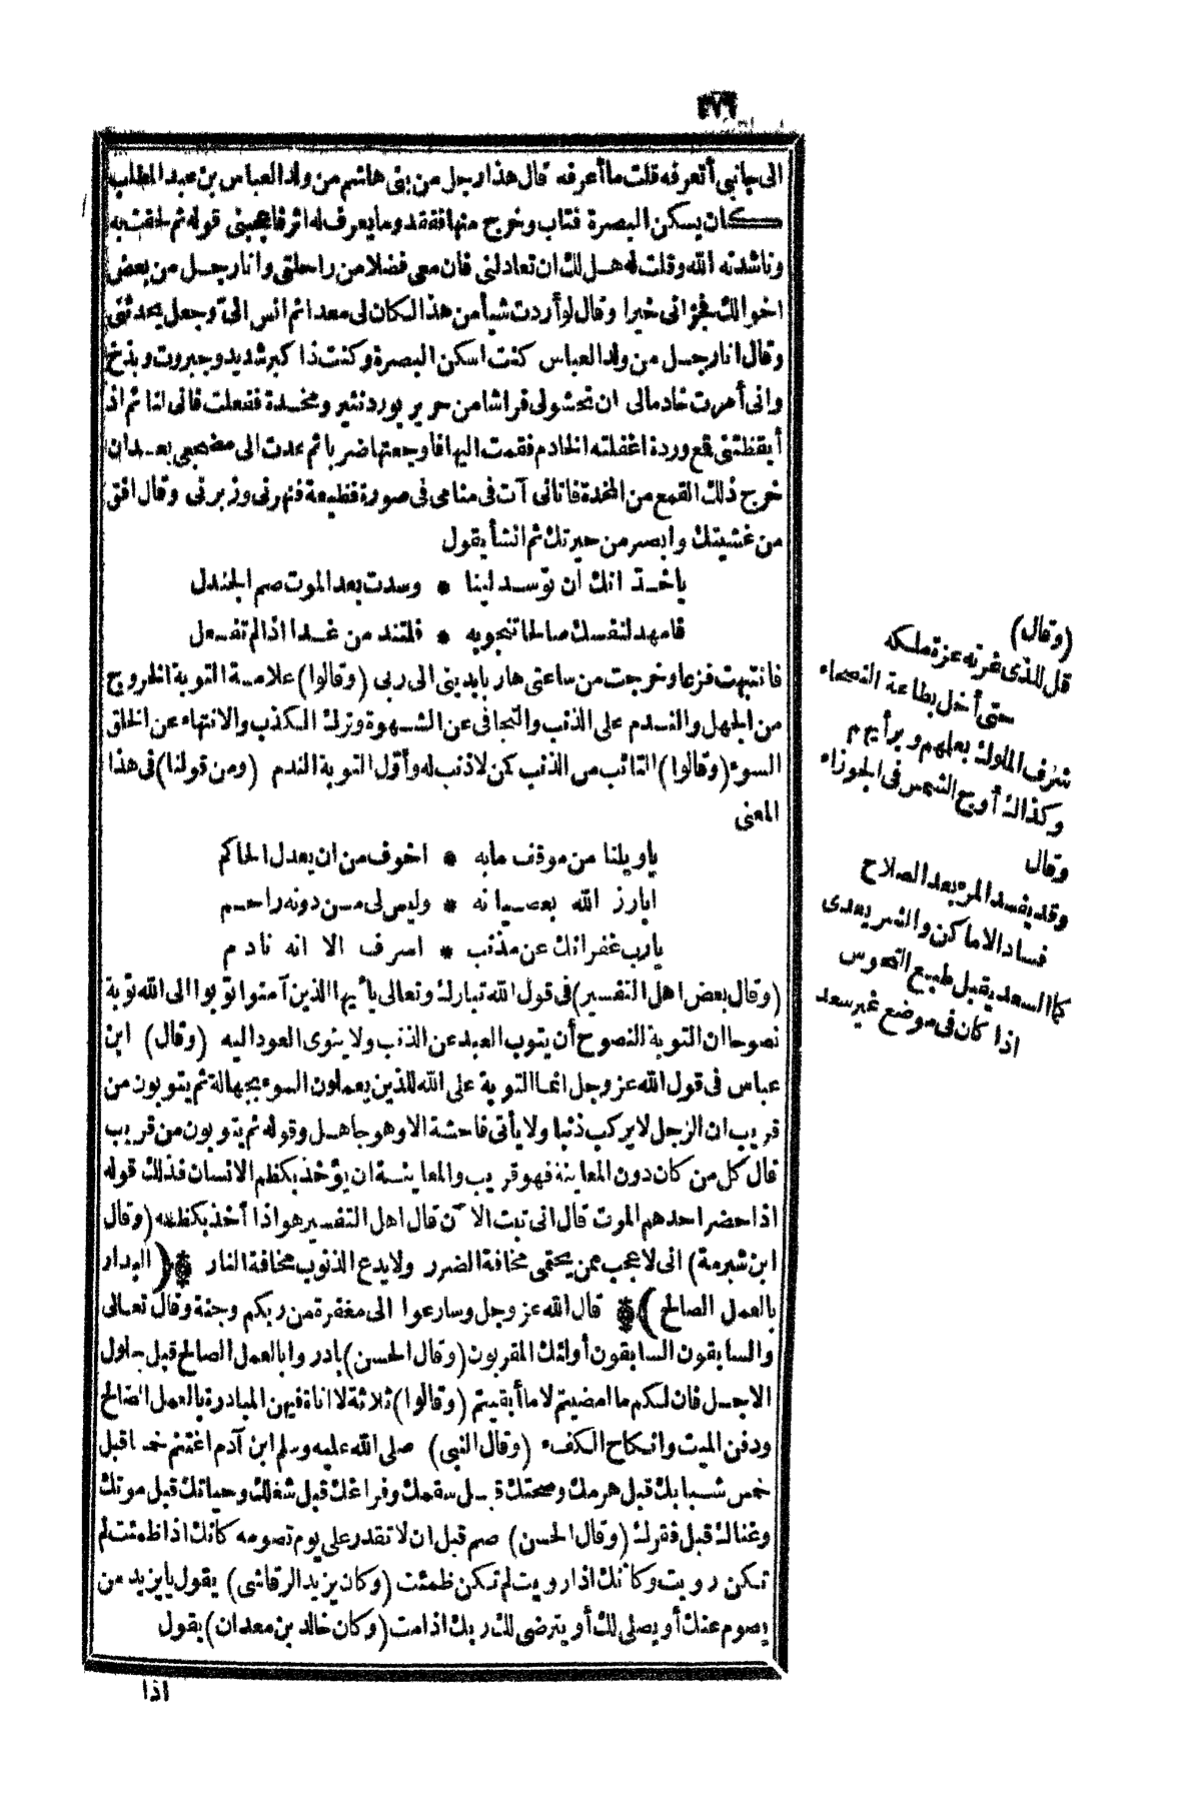 ٣٧٦
الى جانبى أتعرفه قلت ما أعرفه قال هذا رجل من بنى هاشم من ولد العباس بن عبد المطلب
كان يسكن البصرة فتاب وخرج منها ففقد وما يعرف له اثر فاعجبنى قوله ثم لحقت به
وناشدته الله وقلت له هل لك ان تعادلنى فان معى فضلا من راحلتى وانا رجل من بعض
اخوالك فجزانى خيرا وقال لو أردت شيأ من هذا لكان لى معدا ثم انس الىّ وجعل يحدثنى
وقال انا رجل من ولد العباس كنت اسكن البصرة وكنت ذا كبر شديد وجبروت وبذخ
وانى أمرت خادما لى ان تحشو لى فراشا من حرير بورد نثير ومخدة ففعلت فانى لنائم اذ
أيقظتنى قمع وردة اغفلته الخادم فقمت اليها فاوجعتها ضربا ثم عدت الى مضجعى بعد ان
خرج ذلك القمع من المخدة فاتانى آت فى منامى فى صورة فظيعة فنهرنى وزبرنى وقال افق
من غشيتك وابصر من حيرتك ثم انشأ يقول
ياخد انك ان توسد لينا * وسدت بعد الموت صم الجندل
فامهد لنفسك صالحا تنجو به * فلتندمن غدا اذا لم تفعل
فانتبهت فزعا وخرجت من ساعتى هاربا بدينى الى ربى (وقالوا) علامة التوبة الخروج
من الجهل والندم على الذنب والتجافى عن الشهوة وترك الكذب والانتهاء عن الخلق
السوء (وقالوا) التائب من الذنب كمن لا ذنب له وأول التوبة الندم (ومن قولنا) فى هذا
المعنى
ياويلنا من موقف مابه * اخوف من ان يعدل الحاكم
ابارز الله بعصيانه * وليس لى من دونه راحم
يارب غفرانك عن مذنب * اسرف الا انه نادم
(وقال بعض اهل التفسير) فى قول الله تبارك وتعالى يا أيها الذين آمنوا توبوا الى الله توبة
نصوحا ان التوبة النصوح أن يتوب العبد عن الذنب ولا ينوى العود اليه (وقال) ابن
عباس فى قول الله عز وجل انما التوبة على الله للذين يعملون السوء بجهالة ثم يتوبون من
قريب ان الرجل لا يركب ذنبا ولا يأتى فاحشة الا وهو جاهل وقوله ثم يتوبون من قريب
قال كل من كان دون المعاينة فهو قريب والمعاينة ان يؤخذ بكظم الانسان فذلك قوله
اذا حضر احدهم الموت قال انى تبت الآن قال اهل التفسير هو اذا أخذ بكظمه (وقال
ابن شبرمة) انى لاعجب ممن يحتمى مخافة الضرر ولا يدع الذنوب مخافة النار * (البدار
بالعمل الصالح) * قال الله عز وجل وسارعوا الى مغفرة من ربكم وجنة وقال تعالى
والسابقون السابقون أولئك المقربون (وقال الحسن) بادروا بالعمل الصالح قبل حلول
الاجل فان لكم ما امضيتم لا ما أبقيتم (وقالوا) ثلاثة لا اناة فيهن المبادرة بالعمل الصالح
ودفن الميت وانكاح الكفء (وقال النبى) صلى الله عليه وسلم ابن آدم اغتنم خمسا قبل
خمس شبابك قبل هرمك وصحتك قبل سقمك وفراغك قبل شغلك وحياتك قبل موتك
وغناك قبل فقرك (وقال الحسن) صم قبل ان لا تقدر على يوم تصومه كأنك اذا ظمئت لم
تكن رويت وكأنك اذا رويت لم تكن ظمئت (وكان يزيد الرقاشى) يقول يا يزيد من
يصوم عنك أو يصلى لك أو يترضى لك ربك اذا مت (وكان خالد بن معدان) يقول
اذا
(وقال)
قل للذى غرته عزة ملكه
حتى أخل بطاعة النصحاء
شرف الملوك بعلمهم وبرأيهم
وكذاك أوج الشمس فى الجوزاء
وقال
وقد يفسد المرء بعد الصلاح
فساد الاماكن والشر يعدى
كما السعد يقبل طبع النحوس
اذا كان فى موضع غير سعد